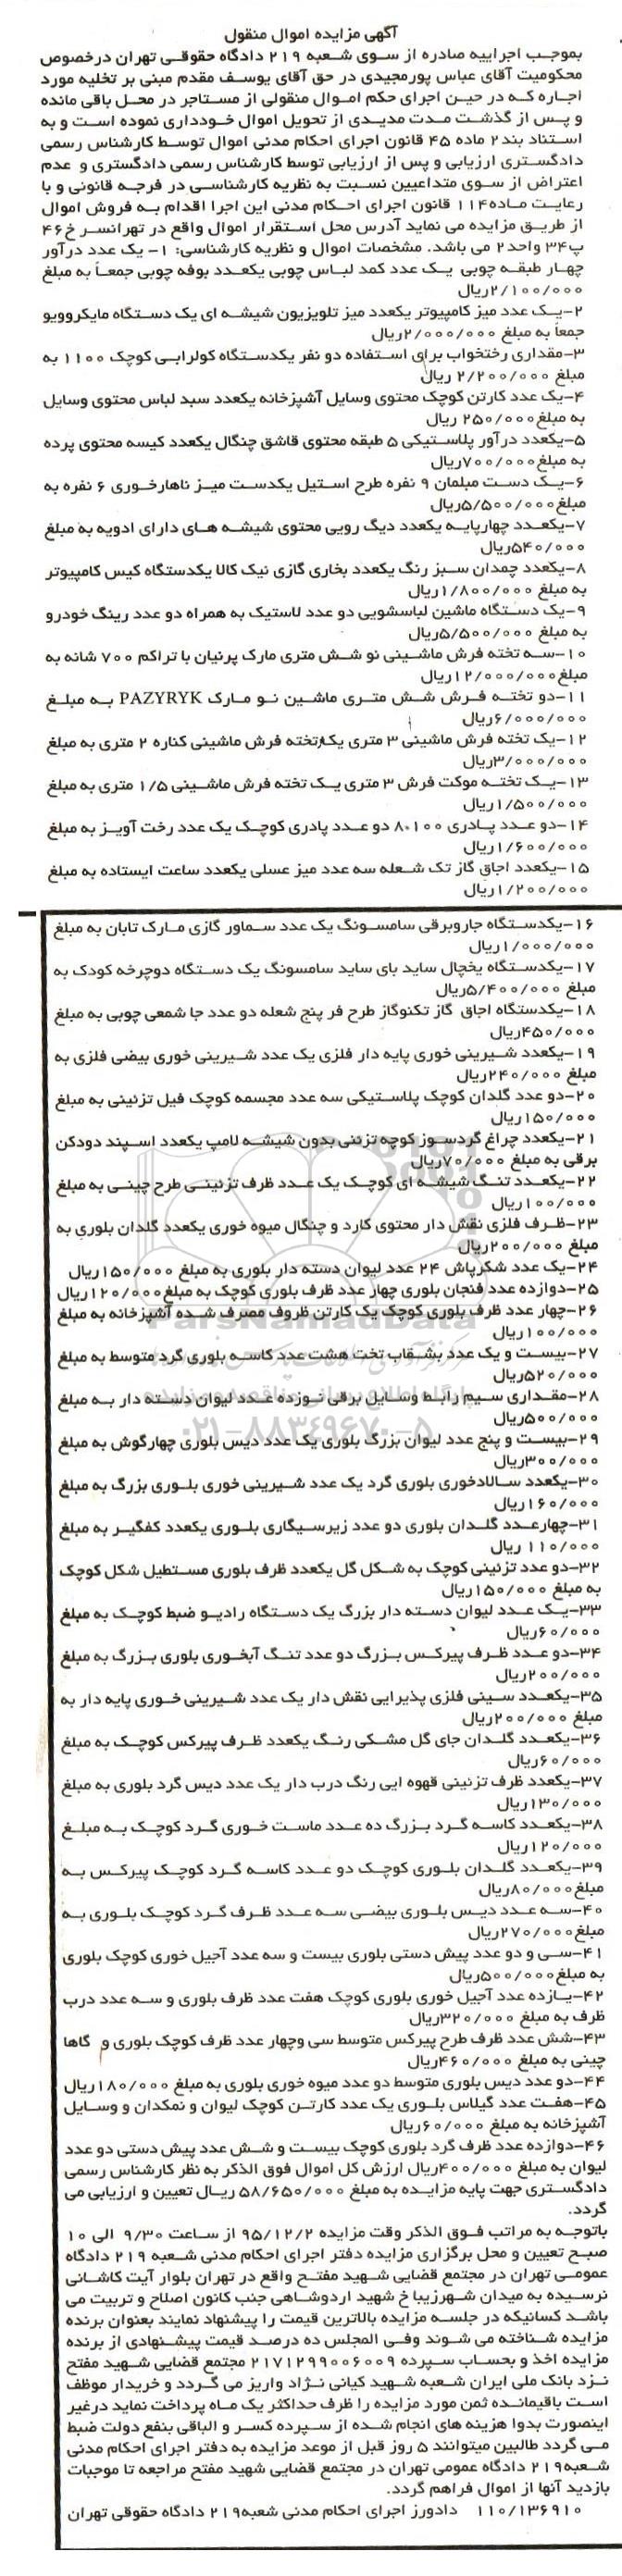 آگهی مزایده اموال منقول
بموجب اجراییه صادره از سوی شعبه ۲۱۹ دادگاه حقوقی تهران درخصوص
محکومیت آقای عباس پورمجیدی در حق آقای یوسف مقدم مبنی بر تخلیه مورد
اجاره که در حین اجرای حکم اموال منقولی از مستاجر در محل باقی مانده
و پس از گذشت مدت مدیدی از تحویل اموال خودداری نموده است و به
استناد بند۲ ماده ۴۵ قانون اجرای احکام مدنی اموال توسط کارشناس رسمی
دادگستری ارزیابی و پس از ارزیابی توسط کارشناس رسمی دادگستری و عدم
اعتراض از سوی متداعیین نسبت به نظریه کارشناسی در فرجه قانونی و با
رعایت ماده۱۱۴ قانون اجرای احکام مدنی این اجرا اقدام به فروش اموال
از طریق مزایده می نماید آدرس محل استقرار اموال واقع در تهرانسر خ۴۶
پ۳۴ واحد۲ می باشد. مشخصات اموال و نظریه کارشناسی: ۱- یک عدد درآور
چهار طبقه چوبی یک عدد کمد لباس چوبی یکعدد بوفه چوبی جمعاً به مبلغ
۲/۱۰۰/۰۰۰ریال
۲-یک عدد میز کامپیوتر یکعدد میز تلویزیون شیشه ای یک دستگاه مایکروویو
جمعاً به مبلغ ۲/۰۰۰/۰۰۰ریال
۳-مقداری رختخواب برای استفاده دو نفر یکدستگاه کولرابی کوچک ۱۱۰۰ به
مبلغ ۲/۲۰۰/۰۰۰ ریال
۴-یک عدد کارتن کوچک محتوی وسایل آشپزخانه یکعدد سبد لباس محتوی وسایل
به مبلغ۲۵۰/۰۰۰ ریال
۵-یکعدد درآور پلاستیکی ۵ طبقه محتوی قاشق چنگال یکعدد کیسه محتوی پرده
به مبلغ۷۰۰/۰۰۰ریال
۶-یک دست مبلمان ۹ نفره طرح استیل یکدست میز ناهارخوری ۶ نفره به
مبلغ۵/۵۰۰/۰۰۰ریال
۷-یکعدد چهارپایه یکعدد دیگ رویی محتوی شیشه های دارای ادویه به مبلغ
۵۴۰/۰۰۰ریال
۸-یکعدد چمدان سبز رنگ یکعدد بخاری گازی نیک کالا یکدستگاه کیس کامپیوتر
به مبلغ ۱/۸۰۰/۰۰۰ریال
۹-یک دستگاه ماشین لباسشویی دو عدد لاستیک به همراه دو عدد رینگ خودرو
به مبلغ ۵/۵۰۰/۰۰۰ریال
۱۰-سه تخته فرش ماشینی نو شش متری مارک پرنیان با تراکم ۷۰۰ شانه به
مبلغ۱۲/۰۰۰/۰۰۰ریال
۱۱-دو تخته فرش شش متری ماشین نو مارک PAZYRYK به مبلغ
۶/۰۰۰/۰۰۰ریال
۱۲-یک تخته فرش ماشینی ۳ متری یک تخته فرش ماشینی کناره ۲ متری به مبلغ
۳/۰۰۰/۰۰۰ریال
۱۳-یک تخته موکت فرش ۳ متری یک تخته فرش ماشینی ۱/۵ متری به مبلغ
۱/۵۰۰/۰۰۰ریال
۱۴-دو عدد پادری ۸۰.۱۰۰ دو عدد پادری کوچک یک عدد رخت آویز به مبلغ
۱/۶۰۰/۰۰۰ریال
۱۵-یکعدد اجاق گاز تک شعله سه عدد میز عسلی یکعدد ساعت ایستاده به مبلغ
۱/۲۰۰/۰۰۰ریال
۱۶-یکدستگاه جاروبرقی سامسونگ یک عدد سماور گازی مارک تابان به مبلغ
۱/۰۰۰/۰۰۰ریال
۱۷-یکدستگاه یخچال ساید بای ساید سامسونگ یک دستگاه دوچرخه کودک به
مبلغ ۵/۴۰۰/۰۰۰ریال
۱۸-یکدستگاه اجاق گاز تکنوگاز طرح فر پنج شعله دو عدد جا شمعی چوبی به مبلغ
۴۵۰/۰۰۰ریال
۱۹-یکعدد شیرینی خوری پایه دار فلزی یک عدد شیرینی خوری بیضی فلزی به
مبلغ ۲۴۰/۰۰۰ریال
۲۰-دو عدد گلدان کوچک پلاستیکی سه عدد مجسمه کوچک فیل تزئینی به مبلغ
۱۵۰/۰۰۰ریال
۲۱-یکعدد چراغ گردسوز کوچه تزئنی بدون شیشه لامپ یکعدد اسپند دودکن
برقی به مبلغ ۷۰/۰۰۰ریال
۲۲-یکعدد تنگ شیشه ای کوچک یک عدد ظرف تزئینی طرح چینی به مبلغ
۱۰۰/۰۰۰ریال
۲۳-ظرف فلزی نقش دار محتوی کارد و چنگال میوه خوری یکعدد گلدان بلوری به
مبلغ ۲۰۰/۰۰۰ریال
۲۴-یک عدد شکرپاش ۲۴ عدد لیوان دسته دار بلوری به مبلغ ۱۵۰/۰۰۰ریال
۲۵-دوازده عدد فنجان بلوری چهار عدد ظرف بلوری کوچک به مبلغ۱۲۰/۰۰۰ریال
۲۶-چهار عدد ظرف بلوری کوچک یک کارتن ظروف مصرف شده آشپزخانه به مبلغ
۱۰۰/۰۰۰ریال
ParsNamadData
۲۷-بیست و یک عدد بشقاب تخت هشت عدد کاسه بلوری گرد متوسط به مبلغ
۵۲۰/۰۰۰ریال
۲۸-مقداری سیم رابط وسایل برقی نوزده عدد لیوان دسته دار به مبلغ
۵۰۰/۰۰۰ریال
۰۲۱-۸۸۳۴۹۶۷۰-۵
۲۹-بیست و پنج عدد لیوان بزرگ بلوری یک عدد دیس بلوری چهارگوش به مبلغ
۳۰۰/۰۰۰ریال
۳۰-یکعدد سالادخوری بلوری گرد یک عدد شیرینی خوری بلوری بزرگ به مبلغ
۱۶۰/۰۰۰ریال
۳۱-چهارعدد گلدان بلوری دو عدد زیرسیگاری بلوری یکعدد کفگیر به مبلغ
۱۱۰/۰۰۰ ریال
۳۲-دو عدد تزئینی کوچک به شکل گل یکعدد ظرف بلوری مستطیل شکل کوچک
به مبلغ ۱۵۰/۰۰۰ریال
۳۳-یک عدد لیوان دسته دار بزرگ یک دستگاه رادیو ضبط کوچک به مبلغ
۶۰/۰۰۰ریال
۳۴-دو عدد ظرف پیرکس بزرگ دو عدد تنگ آبخوری بلوری بزرگ به مبلغ
۲۰۰/۰۰۰ریال
۳۵-یکعدد سینی فلزی پذیرایی نقش دار یک عدد شیرینی خوری پایه دار به
مبلغ ۲۰۰/۰۰۰ریال
۳۶-یکعدد گلدان جای گل مشکی رنگ یکعدد ظرف پیرکس کوچک به مبلغ
۶۰/۰۰۰ریال
۳۷-یکعدد ظرف تزئینی قهوه ایی رنگ درب دار یک عدد دیس گرد بلوری به مبلغ
۱۳۰/۰۰۰ریال
۳۸-یکعدد کاسه گرد بزرگ ده عدد ماست خوری گرد کوچک به مبلغ
۱۲۰/۰۰۰ریال
۳۹-یکعدد گلدان بلوری کوچک دو عدد کاسه گرد کوچک پیرکس به
مبلغ۸۰/۰۰۰ریال
۴۰-سه عدد دیس بلوری بیضی سه عدد ظرف گرد کوچک بلوری به
مبلغ۲۷۰/۰۰۰ریال
۴۱-سی و دو عدد پیش دستی بلوری بیست و سه عدد آجیل خوری کوچک بلوری
به مبلغ۵۰۰/۰۰۰ریال
۴۲-یازده عدد آجیل خوری بلوری کوچک هفت عدد ظرف بلوری و سه عدد درب
ظرف به مبلغ ۳۲۰/۰۰۰ریال
۴۳-شش عدد ظرف طرح پیرکس متوسط سی وچهار عدد ظرف کوچک بلوری و گاها
چینی به مبلغ ۴۶۰/۰۰۰ریال
۴۴-دو عدد دیس بلوری متوسط دو عدد میوه خوری بلوری به مبلغ ۱۸۰/۰۰۰ریال
۴۵-هفت عدد گیلاس بلوری یک عدد کارتن کوچک لیوان و نمکدان و وسایل
آشپزخانه به مبلغ ۶۰/۰۰۰ریال
۴۶-دوازده عدد ظرف گرد بلوری کوچک بیست و شش عدد پیش دستی دو عدد
لیوان به مبلغ ۴۰۰/۰۰۰ریال ارزش کل اموال فوق الذکر به نظر کارشناس رسمی
دادگستری جهت پایه مزایده به مبلغ ۵۸/۶۵۰/۰۰۰ ریال تعیین و ارزیابی می
گردد.
باتوجه به مراتب فوق الذکر وقت مزایده ۹۵/۱۲/۲ از ساعت ۹/۳۰ الی ۱۰
صبح تعیین و محل برگزاری مزایده دفتر اجرای احکام مدنی شعبه ۲۱۹ دادگاه
عمومی تهران در مجتمع قضایی شهید مفتح واقع در تهران بلوار آیت کاشانی
نرسیده به میدان شهرزیبا خ شهید اردوشاهی جنب کانون اصلاح و تربیت می
باشد کسانیکه در جلسه مزایده بالاترین قیمت را پیشنهاد نمایند بعنوان برنده
مزایده شناخته می شوند وفی المجلس ده درصد قیمت پیشنهادی از برنده
مزایده اخذ و بحساب سپرده ۲۱۷۱۲۹۹۰۰۶۰۰۹ مجتمع قضایی شهید مفتح
نزد بانک ملی ایران شعبه شهید کیانی نژاد واریز می گردد و خریدار موظف
است باقیمانده ثمن مورد مزایده را ظرف حداکثر یک ماه پرداخت نماید درغیر
اینصورت بدوا هزینه های انجام شده از سپرده کسر و الباقی بنفع دولت ضبط
می گردد طالبین میتوانند ۵ روز قبل از موعد مزایده به دفتر اجرای احکام مدنی
شعبه۲۱۹ دادگاه عمومی تهران در مجتمع قضایی شهید مفتح مراجعه تا موجبات
بازدید آنها از اموال فراهم گردد.
۱۱۰/۱۳۶۹۱۰ دادورز اجرای احکام مدنی شعبه۲۱۹ دادگاه حقوقی تهران